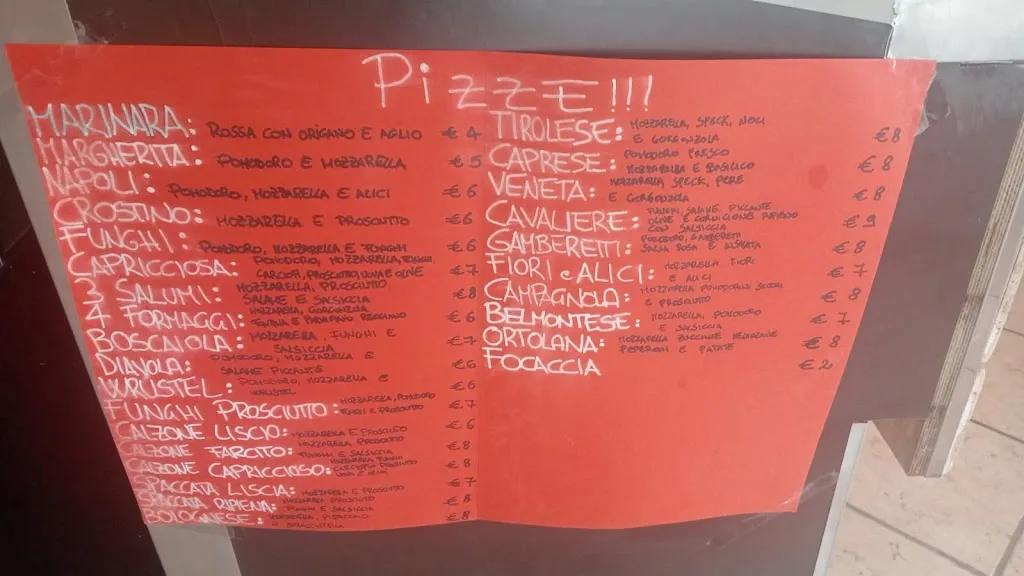 Pizze!!!
MARINARA: ROSSA CON ORIGANO E AGLIO €4
MARGHERITA: POMODORO E MOZZARELLA €5
NAPOLI: POMODORO, MOZZARELLA E ALICI €6
CROSTINO: MOZZARELLA E PROSCIUTTO €6
FUNGHI: POMODORO, MOZZARELLA E FUNGHI €6
CAPRICCIOSA: POMODORO, MOZZARELLA, FUNGHI
CARCIOFI, PROSCIUTTO, UOVA E OLIVE €7
3 SALUMI: MOZZARELLA, PROSCIUTTO
SALAME E SALSICCIA €8
4 FORMAGGI: MOZZARELLA, GORGONZOLA
FONTINA E PARMIGIANO REGGIANO €6
BOSCAIOLA: MOZZARELLA, FUNGHI E
SALSICCIA €7
DIAVOLA: POMODORO, MOZZARELLA E
SALAME PICCANTE €6
WRUSTEL: POMODORO, MOZZARELLA E
WRUSTEL €6
FUNGHI PROSCIUTTO: MOZZARELLA, POMODORO
FUNGHI E PROSCIUTTO €7
CALZONE LISCIO: MOZZARELLA E PROSCIUTTO €6
CALZONE FARCITO: MOZZARELLA PROSCIUTTO
FUNGHI E SALSICCIA €8
CALZONE CAPRICCIOSO: MOZZARELLA FUNGHI
CARCIOFI PROSCIUTTO €8
SPACCATA LISCIA: MOZZARELLA E PROSCIUTTO €7
SPACCATA RIPIENA: MOZZARELLA PROSCIUTTO
FUNGHI E SALSICCIA €8
BOLOGNESE: MORTADELLA, PISTACCHIO €8
TIROLESE: MOZZARELLA, SPECK, NOCI
E GORGONZOLA €8
CAPRESE: POMODORO FRESCO
MOZZARELLA E BASILICO €8
VENETA: MOZZARELLA, SPECK, PERE
E GORGONZOLA €8
CAVALIERE: FUNGHI, SALAME PICCANTE
OLIVE E CORNICIONE RIPIENO
CON SALSICCIA €9
GAMBERETTI: POMODORO, GAMBERETTI
SALSA ROSA E €8
FIORI e ALICI: MOZZARELLA FIORI
E ALICI €7
CAMPAGNOLA: MOZZARELLA POMODORINI
E PROSCIUTTO €8
BELMONTESE: MOZZARELLA, POMODORO
E SALSICCIA €7
ORTOLANA: MOZZARELLA ZUCCHINE MELANZANE
PEPERONI E PATATE €8
FOCACCIA €2